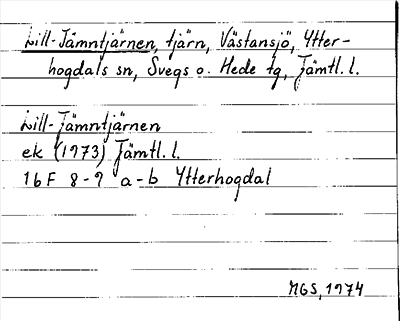 Lill-Jämntjärnen, tjärn, Västansjö, Ytter-
hogdals sn, Svegs o. Hede tg, Jämtl. l.
Lill-Jämntjärnen
ek (1973) Jämtl. l.
16F 8-9 a-b Ytterhogdal
MGS, 1974